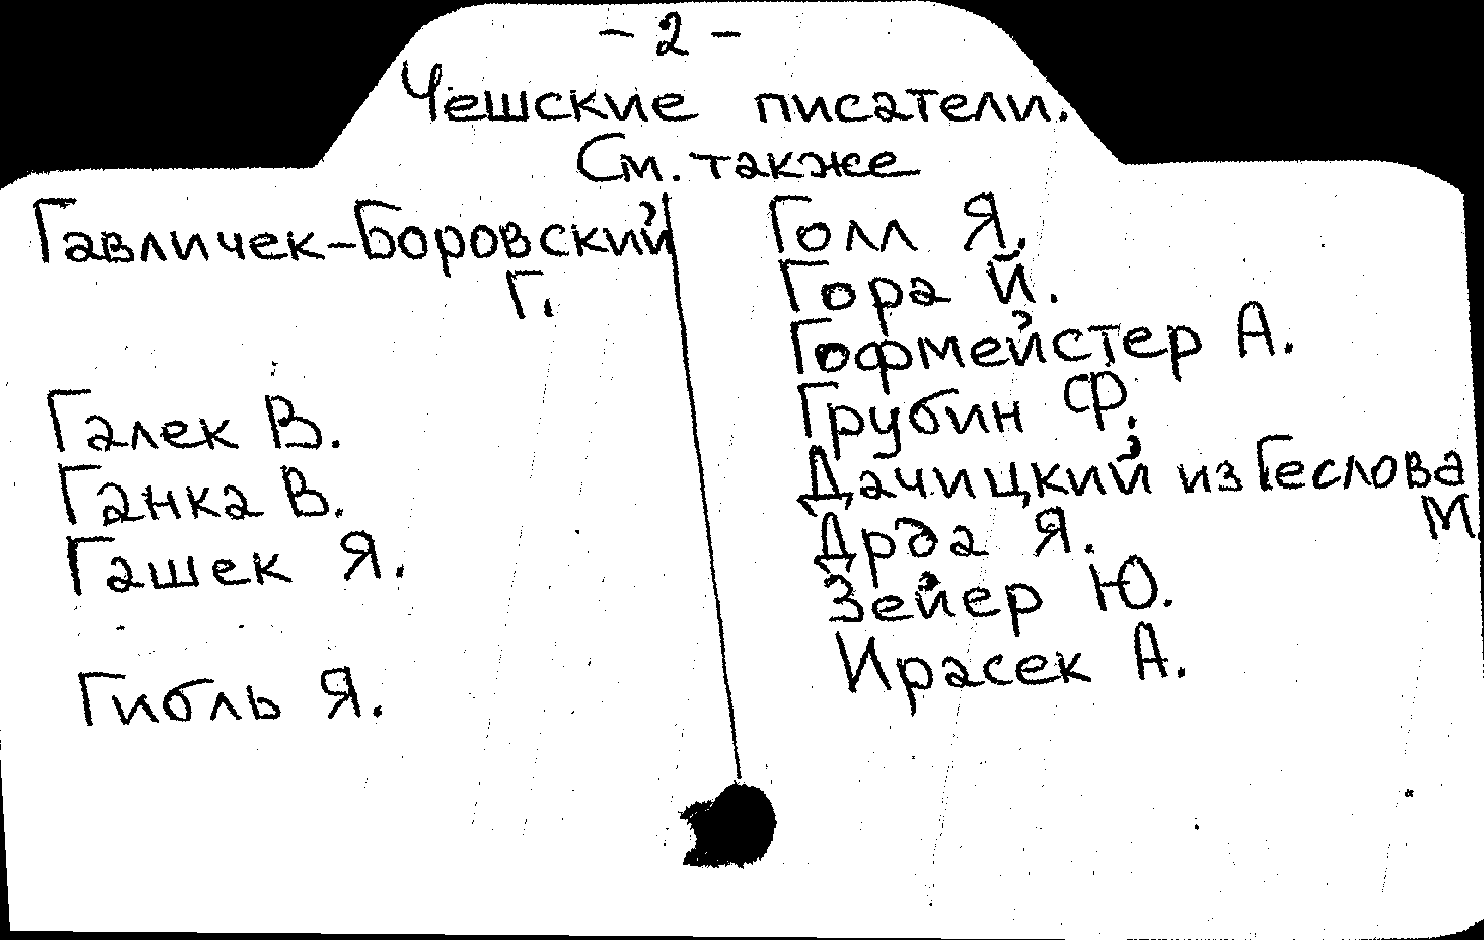 - 2 -
Чешские писатели.
См. также
Гавличек-Боровский
Г.
Галек В.
Ганка В.
Гашек Я.
Гибль Я.
Голл Я.
Гора Й.
Гофмейстер А.
Грубин Ф.
Дачицкий из Геслова
М.
Дрда Я.
Зейер Ю.
Ирасек А.